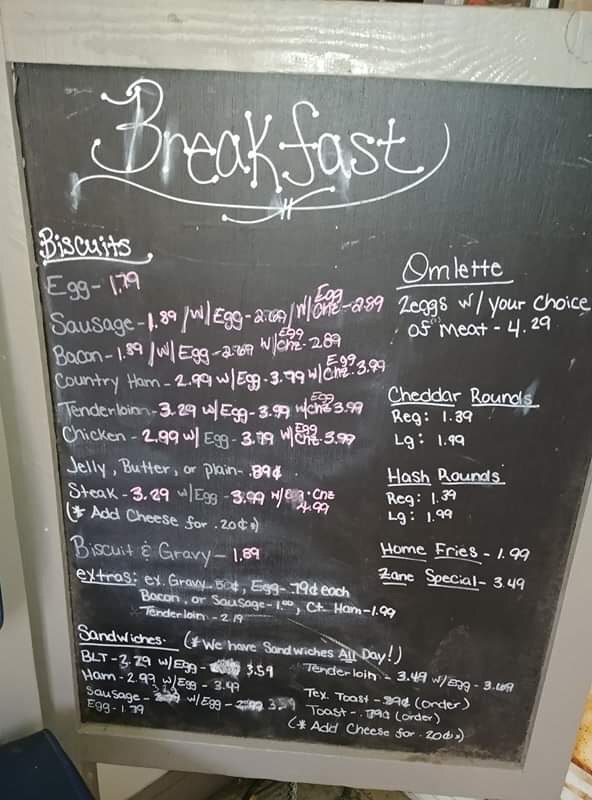 Breakfast
Biscuits
Egg - 1.79
Sausage - 1.89 / w/ Egg - 2.69 / w/ Egg Chz - 2.89
Bacon - 1.89 / w/ Egg - 2.69 w/ Egg Chz - 2.89
Country Ham - 2.99 w/ Egg - 3.79 w/ Egg Chz - 3.99
Tenderloin - 3.29 w/ Egg - 3.99 w/ Egg Chz 3.99
Chicken - 2.99 w/ Egg - 3.79 w/ Egg Chz - 3.99
Jelly, Butter, or plain - .89¢
Steak - 3.29 w/ Egg - 3.99 w/ Egg + Chz 4.99
(* Add Cheese for .20¢*)
Biscuit & Gravy - 1.89
extras: ex. Gravy - 50¢, Egg - .79¢ each
Bacon, or Sausage - 1.00, Ct. Ham - 1.99
Tenderloin - 2.19
Omlette
2 eggs w/ your choice
of meat - 4.29
Cheddar Rounds
Reg: 1.39
Lg: 1.99
Hash Rounds
Reg: 1.39
Lg: 1.99
Home Fries - 1.99
Zane Special - 3.49
Sandwiches. (* We have Sandwiches All Day!)
BLT - 3.29 w/ Egg - 3.59
Ham - 2.99 w/ Egg - 3.49
Sausage - w/ Egg -
Egg - 1.79
Tenderloin - 3.49 w/ Egg - 3.69
Tex. Toast - .89¢ (order)
Toast - .79¢ (order)
(* Add Cheese for .20¢*)